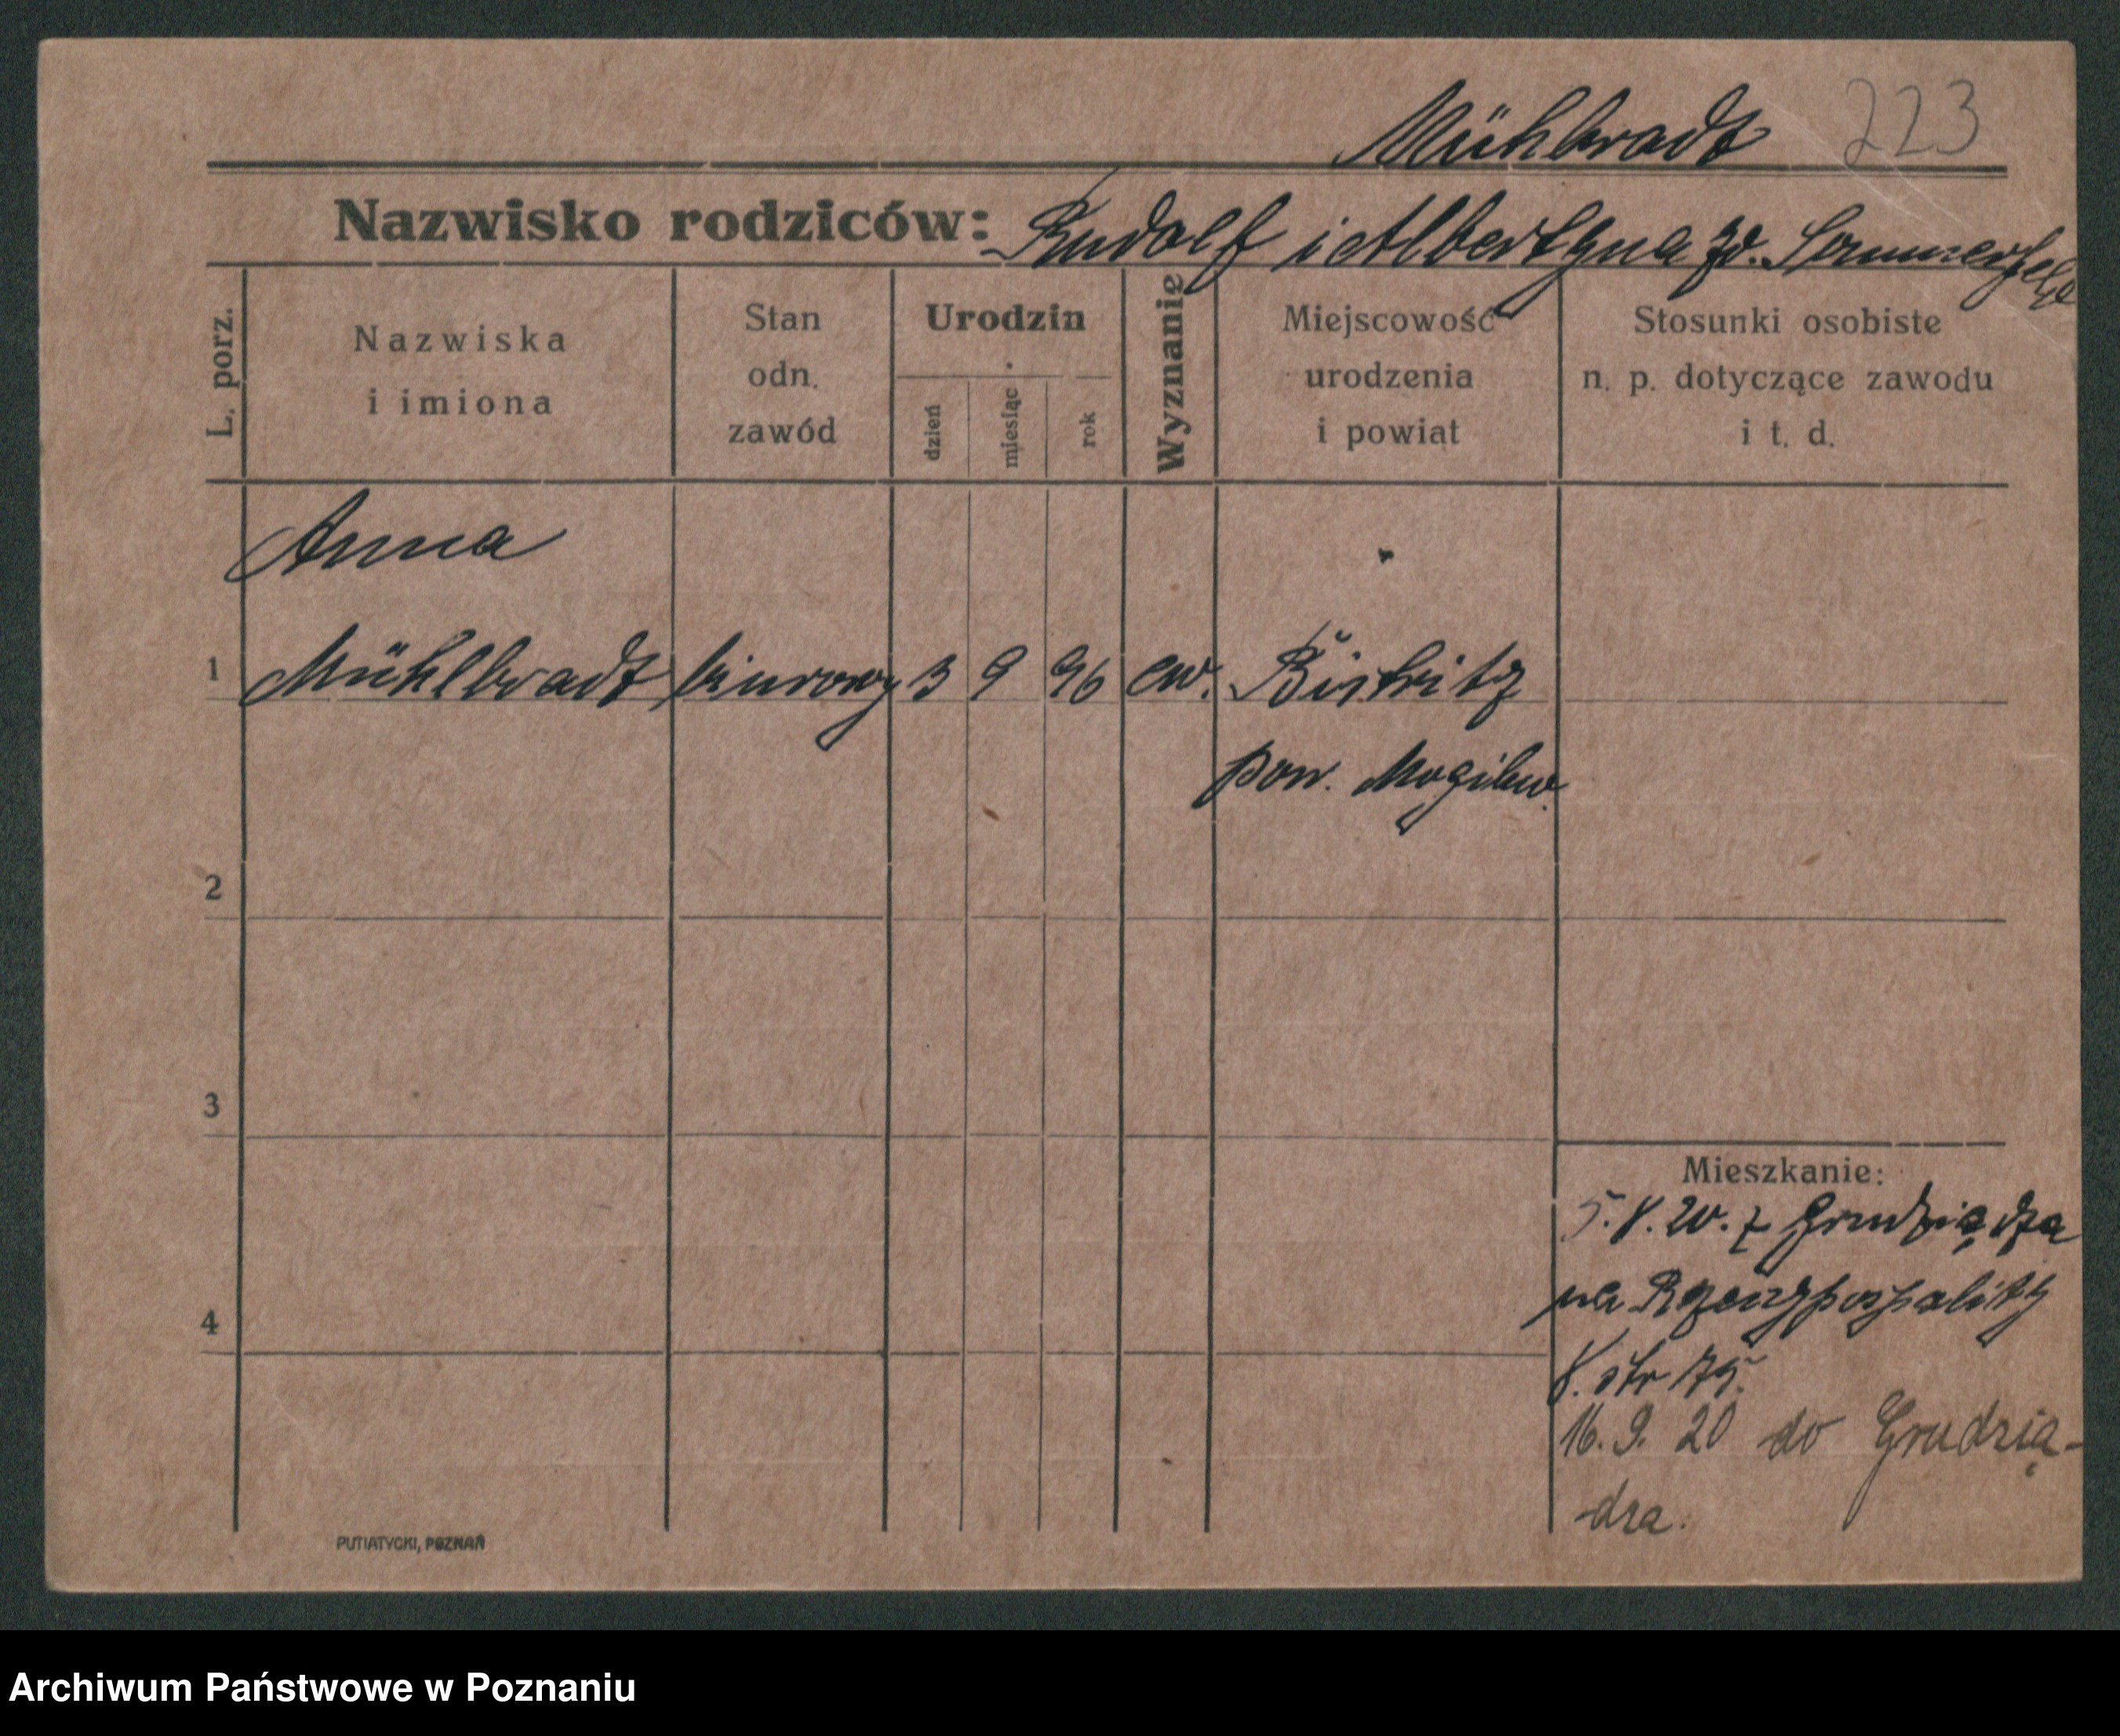 Mühbradt 223
Nazwisko rodziców: Rudolf i Albertyna zd. Sommerfeld
L. porz.
Nazwiska i imiona
Stan odn. zawód
Urodzin
dzień miesiąc rok
Wyznanie
Miejscowość urodzenia i powiat
Stosunki osobiste n. p. dotyczące zawodu i t. d.
Anna
1 Mühlbradt biurowy 3 9 96 ew. Bistritz
pow. Mogilew.
2
3
4
Mieszkanie:
5.8.20. z Grudziądza
na
8. str 175.
16. 9. 20 do Grudzią-
dza.
PUTIATYCKI, POZNAŃ
Archiwum Państwowe w Poznaniu